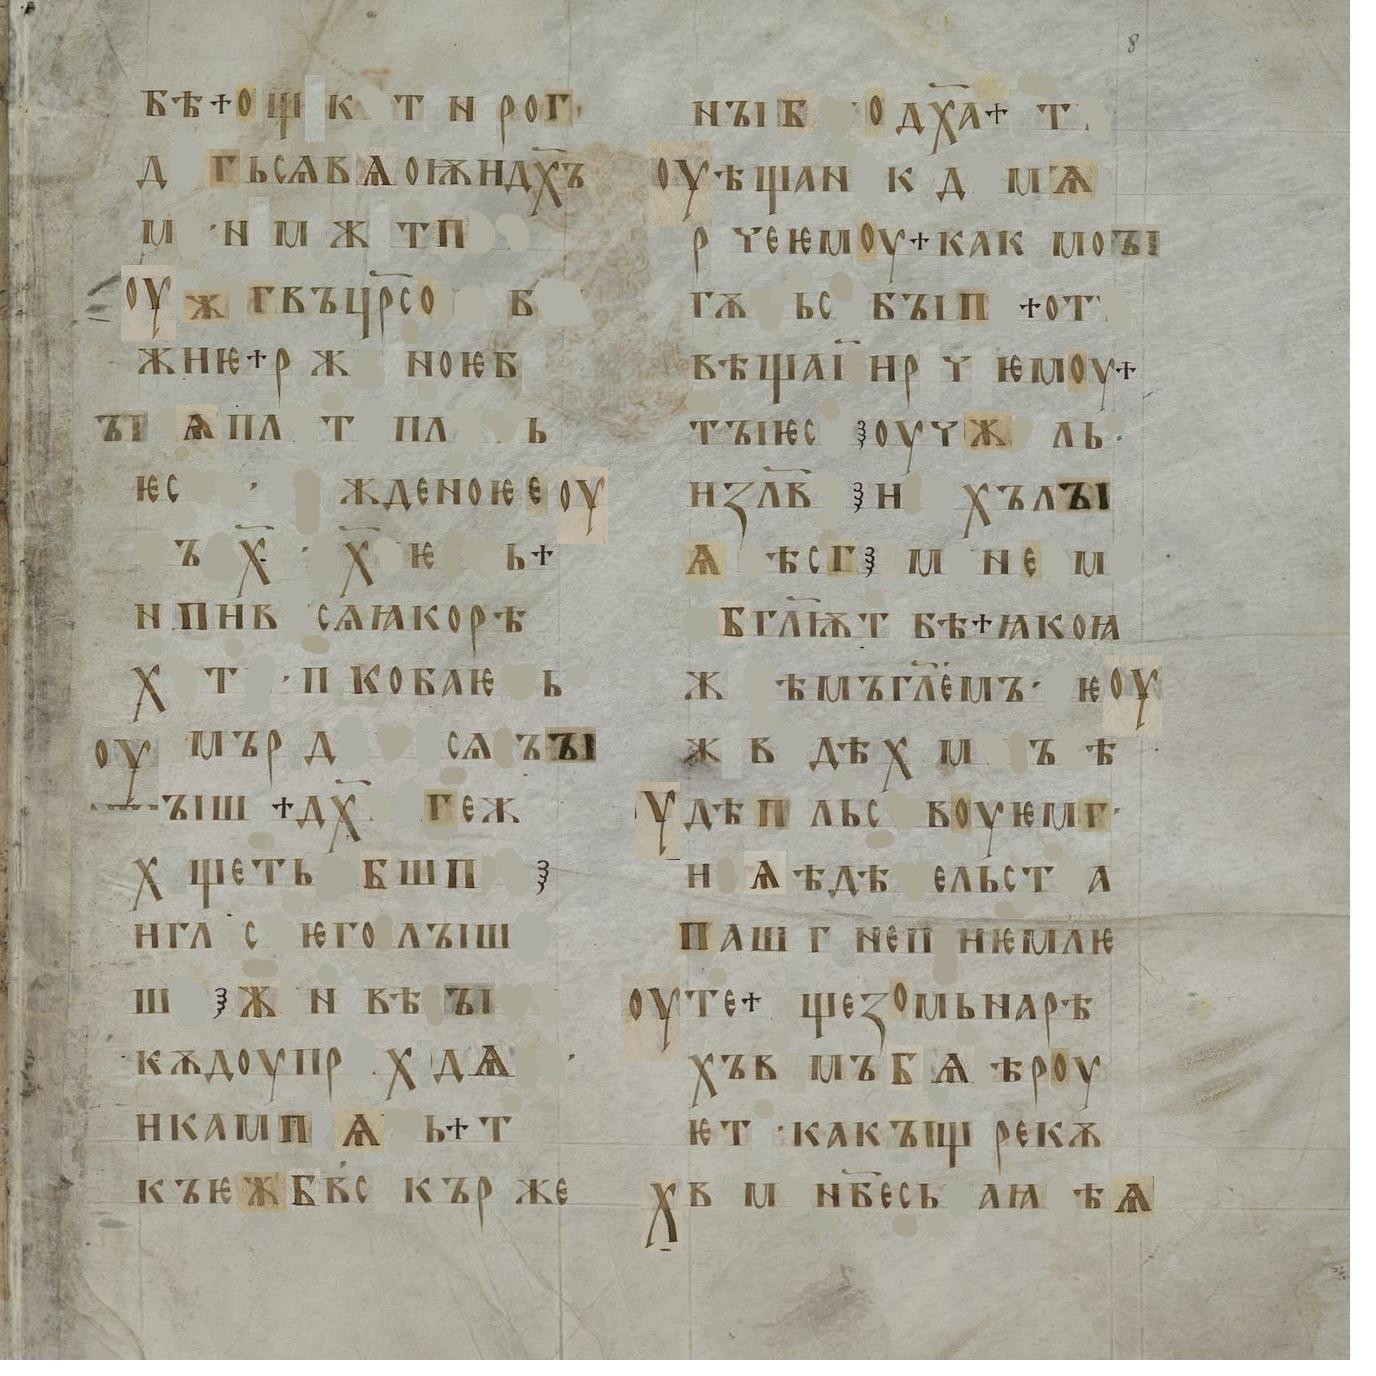 бѣ+ощ к т н рог·
д гьсѧвѧоıѫндх҃ъ
м ·н м ж тп
оу ж гвъцр҃со б
жнѥ+р ж ноѥб
ъı ѧпл т пл ь
ѥс · жденоѥе оу
ъ х҃ · х҃ ѥ ь+
н пнв сѧꙗкорѣ
х т ·п кобаѥ ь
оу мър д сѧ ъъı
ъıш +дх҃ геж
х щеть бшп ꙁ
нгл с ѥго лъıш
ш ꙁж н вѣ ъı
кѫдоупр х дѧ ·
нкамп ѧ ь+т
къѥжбв҃с кър же
нъıб о дх҃а+ т
оуѣщан к д мѫ
р ѵеѥмоу+как моъı
гѫ ьс бъıп +от
вѣщаı҃ нр ѵ ѥмоу+
тъıѥс ꙁоуѵж ль·
нзл҃в ꙁн хълъı
ѧ ѣсгꙁ м н е м
бгл҃ѭт бѣ+ꙗкоꙗ
ж ѣмъгл҃емъ· ѥоу
ж в дѣх м ъ ѣ
удѣп льс воуѥмг·
н ѧ ѣдѣ ельст а
паш г неп нѥмлѥ
оуте+ щезомьнарѣ
хъв мъб ѧ ѣроу
ѥт ·какъıщ рекѫ
хв м нб҃есь аꙗ ѣѧ